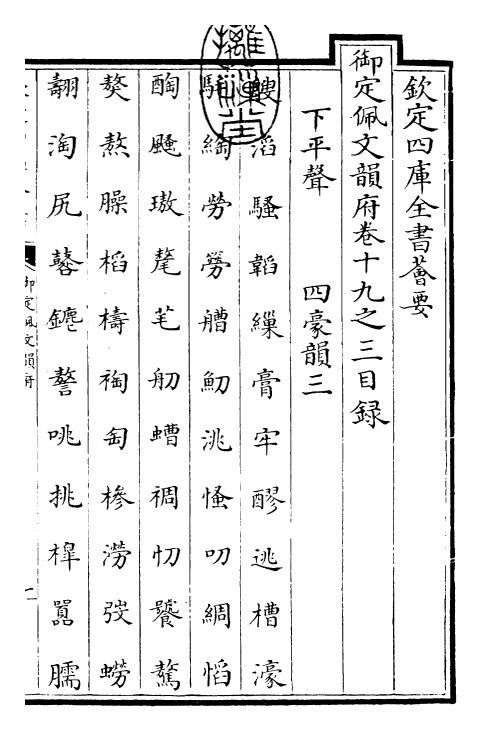 欽定四庫全書薈要
御定佩文韻府卷十九之三目録
下平聲 四豪韻三
艘滔騷韜繅膏牢醪逃槽濠
綯勞簩艚魛洮慅叨綢慆
醄颾璈氂芼舠螬裯忉饕鰲
獒熬臊槄檮裪匋槮澇弢蟧
翿淘尻鼛鏕謷咷挑槔嚣臑
御定佩文韻府